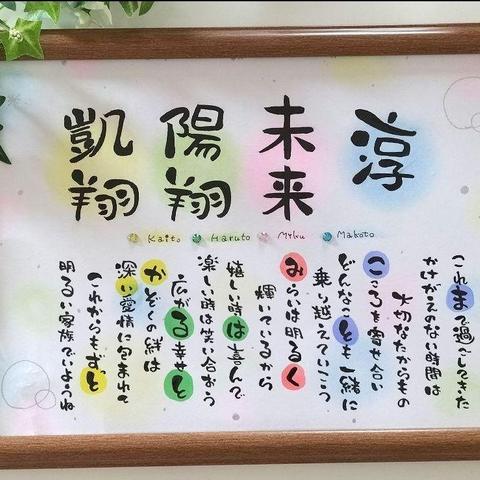 淳
未来
陽翔
凱翔
Kaito Haruto Miku Makoto
これまで過ごしてきた
かけがえのない時間は
大切なたからもの
こころを寄せ合い
どんなことも一緒に
乗り越えていこう
みらいは明るく
輝いているから
嬉しい時は喜んで
楽しい時は笑い合おう
広がる幸せと
かぞくの絆は
深い愛情に包まれて
これからもずっと
明るい家族でいようね